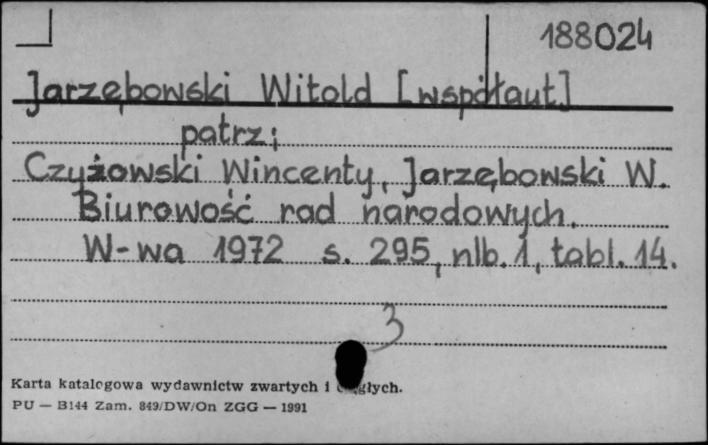 188024
Jarzębowski Witold [współaut]
patrz:
Czyżowski Wincenty, Jarzębowski W.
Biurowość rad narodowych.
W-wa 1972 s. 295, nlb. 1, tabl. 14.
3
Karta katalogowa wydawnictw zwartych i
PU — B144 Zam. 849/DW/On ZGG — 1991